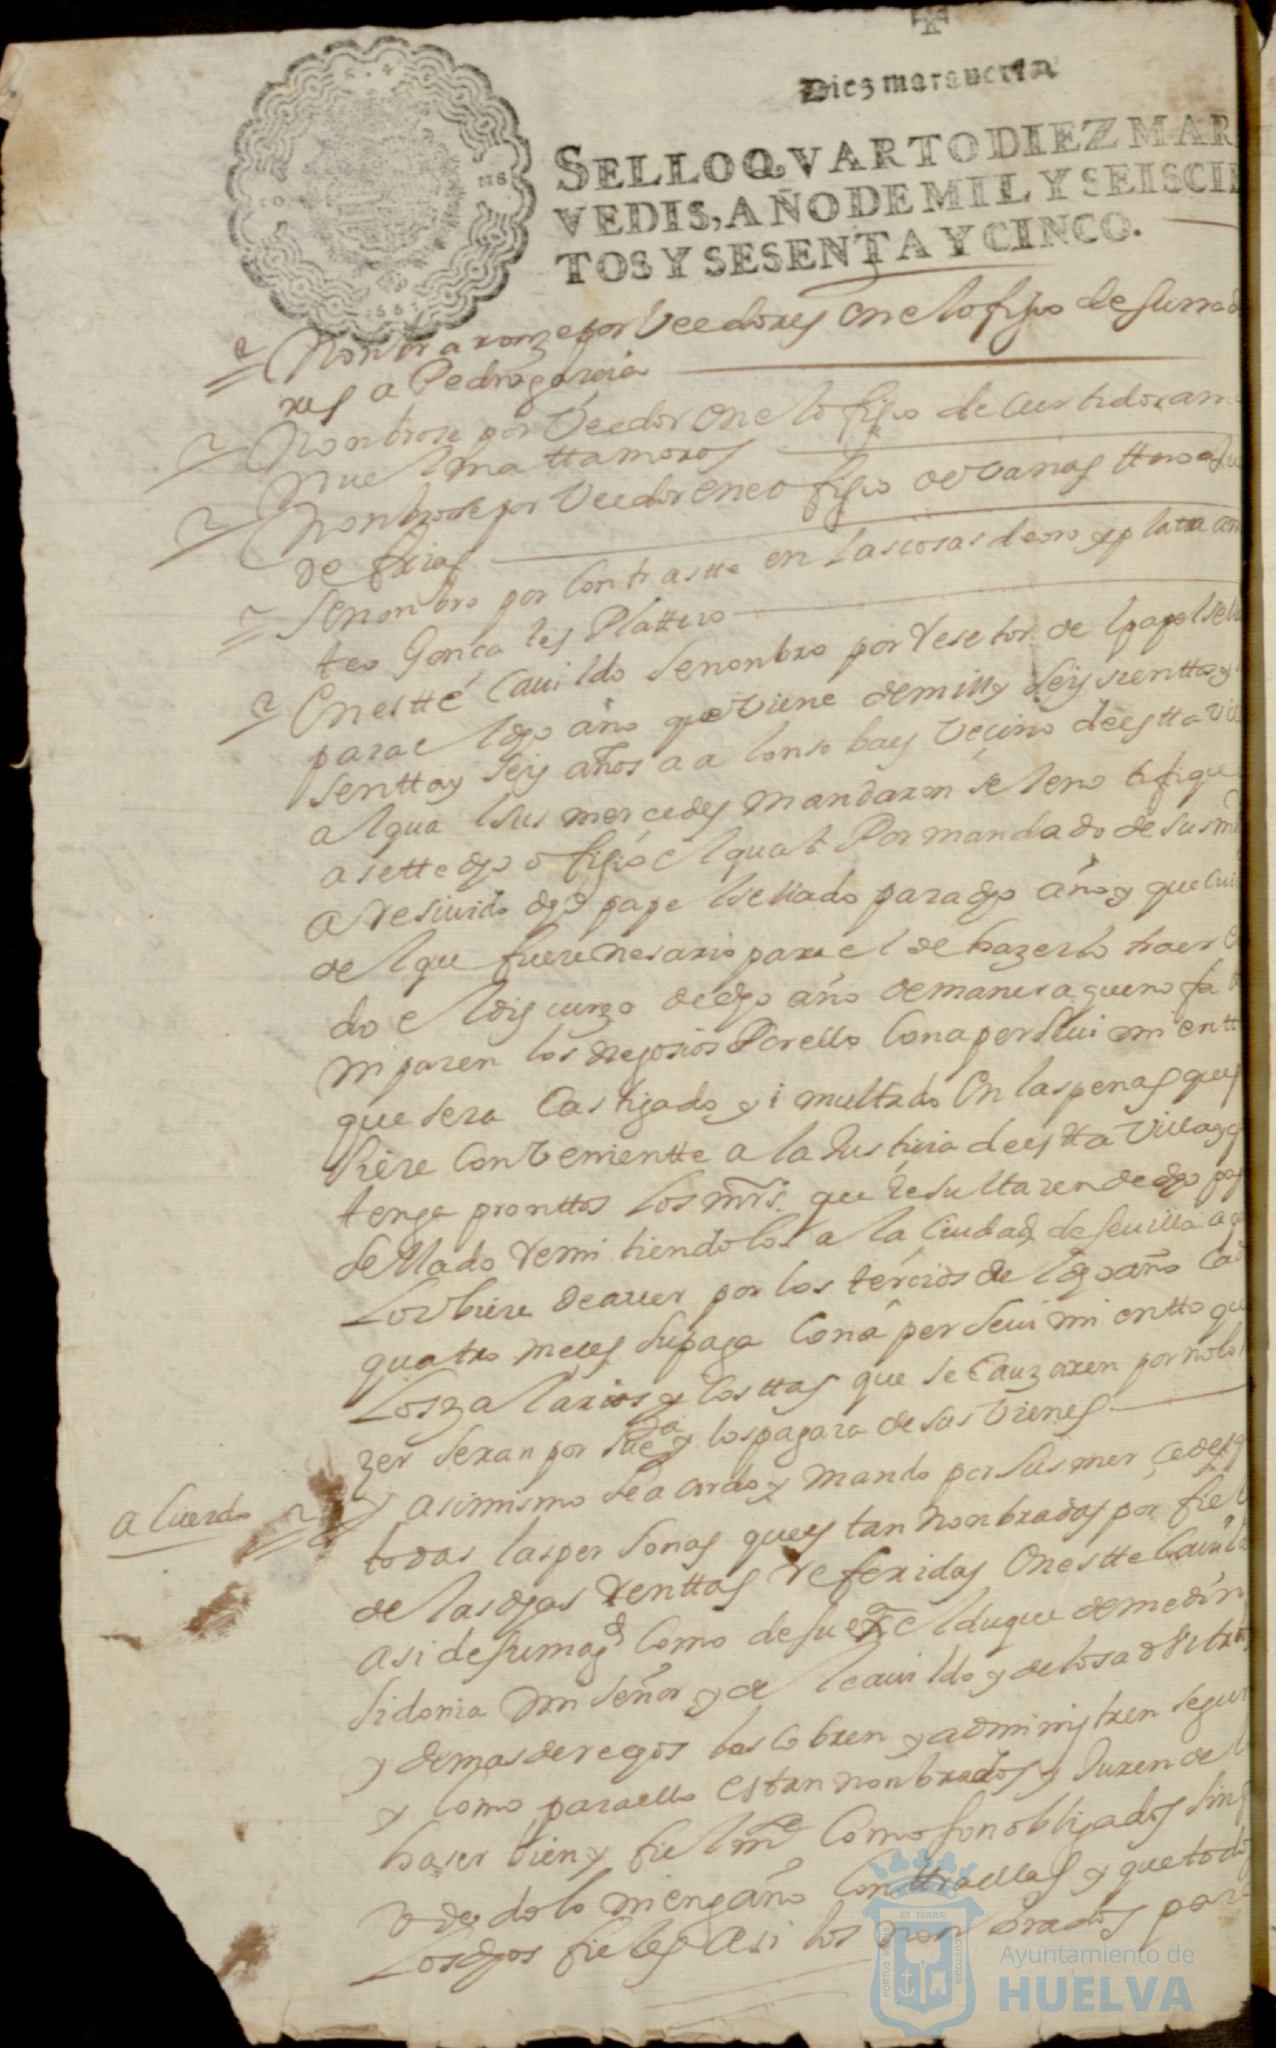 Diez marauedis
SELLO QVARTO DIEZ MAR
VEDIS, AÑO DE MIL Y SEISCIE
TOS Y SESENTA Y CINCO.
Nonbraronze por Veedores en el ofisio de surrad
res a Pedro garcia
Nonbrose por Veedor en el ofisio de curtidor a ma
nuel mattamoros
Nonbrose por Veedor en el ofisio de
de frias
Se nonbro por Contrastte en las cosas de oro y plata a
teo Gonçales Plattero
En estte Cauildo se nonbro por resetor del papel sella
para el dho año que viene de mill y seiscienttos y
senttay seis años a alonso baes Vecino de estta vi
al qual sus mercedes mandaron se le notifique
asette dho ofisio el qual Por mandado de sus m
a resiuido dho papel sellado para dho año y que
del que fuere nesario para el de hazerlo traer
do el discurzo de dho año de manera que no fa
ni paren los negosios Por ello Con apersiuimientt
que sera Castigado y multado En las penas que
siere Conveniente a la Justicia de estta Villa y q
tenga pronttos Los mrs. que resultaren de dho pap
sellado remitiendolos a la Ciudad de Seuilla a q
Lo vbiere de auer por los tercios del dho año Cad
quatro meses su paga Con aperseuimientto que
Los zalarios y costtas que se Cauzaren por no lo
zer seran por su qta y los pagara de sus Vienes
acuerdo
Y asimismo se acordo y mando por sus mercedes q
todas las personas que estan nonbradas por fiel
de las dhas renttas referidas En estte Cauild
asi de su magd Como de su exa el duque de medin
Sidonia mi señor y de el cauildo y de los adbitrios
y demas deregos los cobren y administren segun
y Como para ello estan nonbrados y Juren de
haser bien y fielmte Como son obligados sin
dolo ni engaño Conttra ellas y que todos
Los dhos fieles asi los nonbrados para
PORTUS MARIS
ET TERRÆ
CUSTODIA
Ayuntamiento de
HUELVA